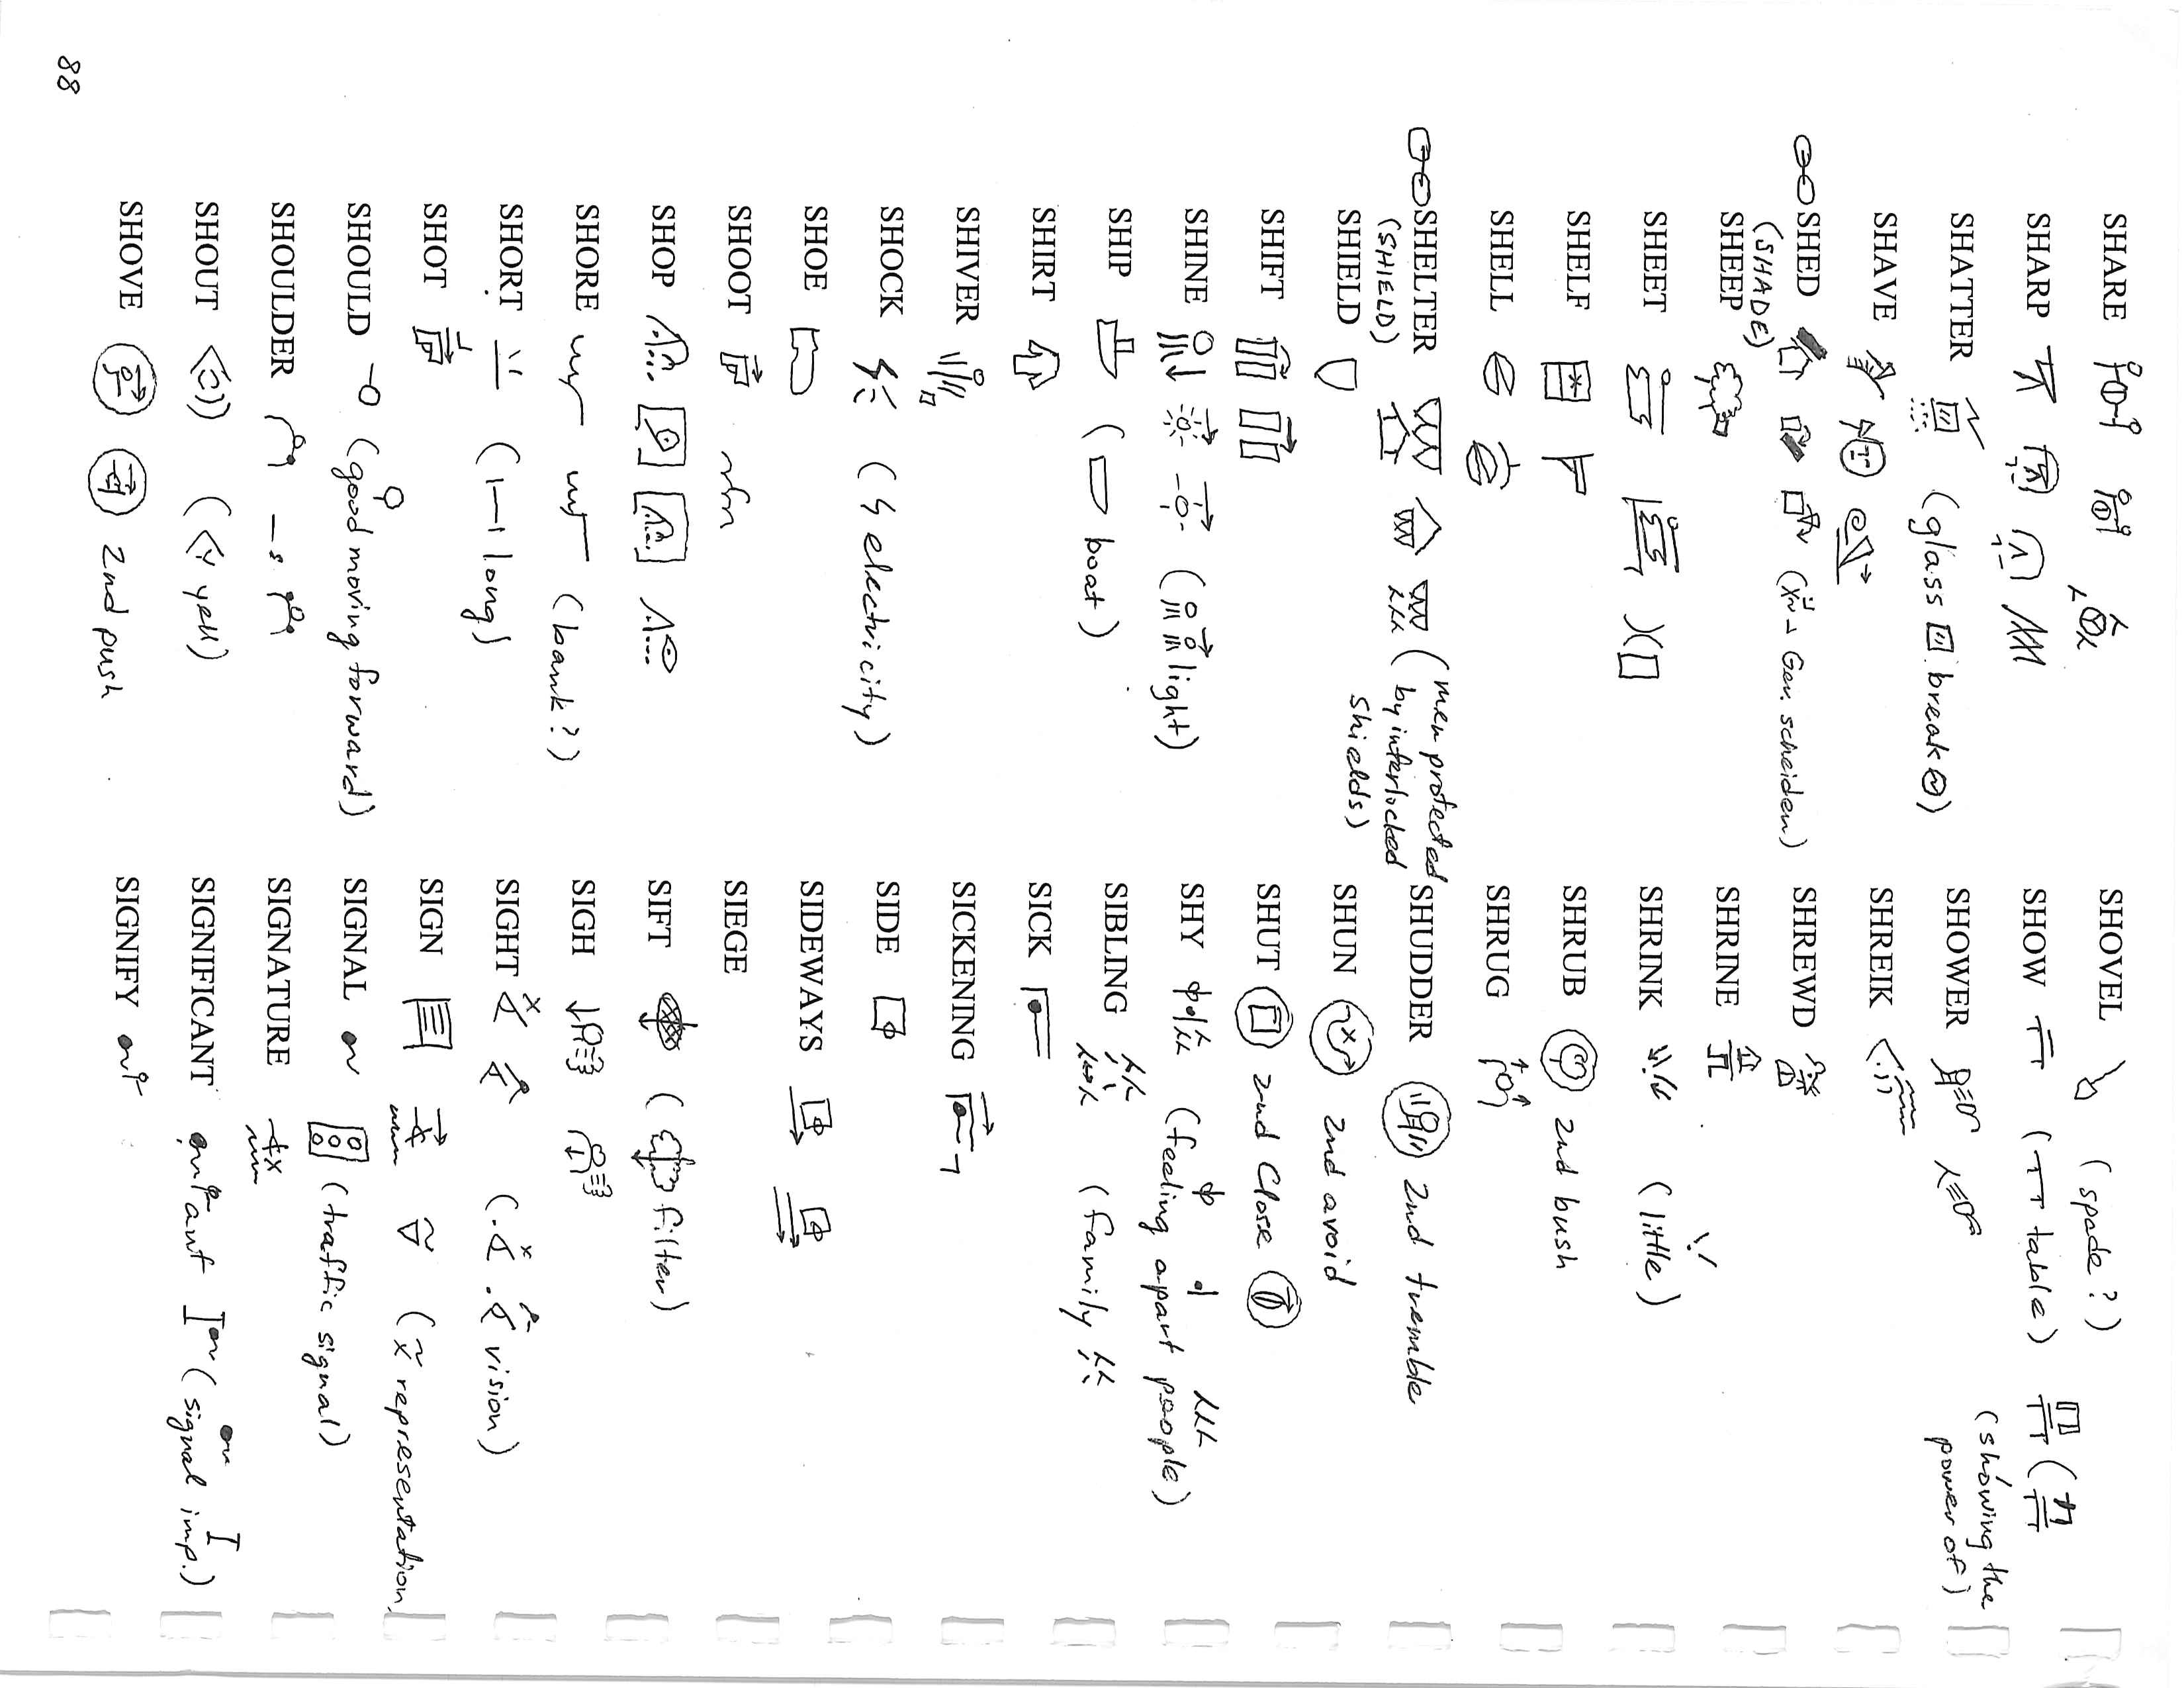 SHARE
SHARP
SHATTER (glass break)
SHAVE
SHED (Ger. scheiden)
(SHADE)
SHEEP
SHEET
SHELF
SHELL
SHELTER (men protected by interlocked shields)
(SHIELD)
SHIELD
SHIFT
SHINE (light)
SHIP (boat)
SHIRT
SHIVER
SHOCK (electricity)
SHOE
SHOOT
SHOP
SHORE (bank?)
SHORT (long)
SHOT
SHOULD (good moving forward)
SHOULDER
SHOUT (yell)
SHOVE 2nd push
SHOVEL (spade?)
SHOW (table) (showing the power of)
SHOWER
SHREIK
SHREWD
SHRINE
SHRINK (little)
SHRUB 2nd bush
SHRUG
SHUDDER 2nd tremble
SHUN 2nd avoid
SHUT 2nd Close
SHY (feeling apart people)
SIBLING (family)
SICK
SICKENING
SIDE
SIDEWAYS
SIEGE
SIFT (filter)
SIGH
SIGHT (vision)
SIGN (representation
SIGNAL (traffic signal)
SIGNATURE
SIGNIFICANT ant (signal imp.)
SIGNIFY
88